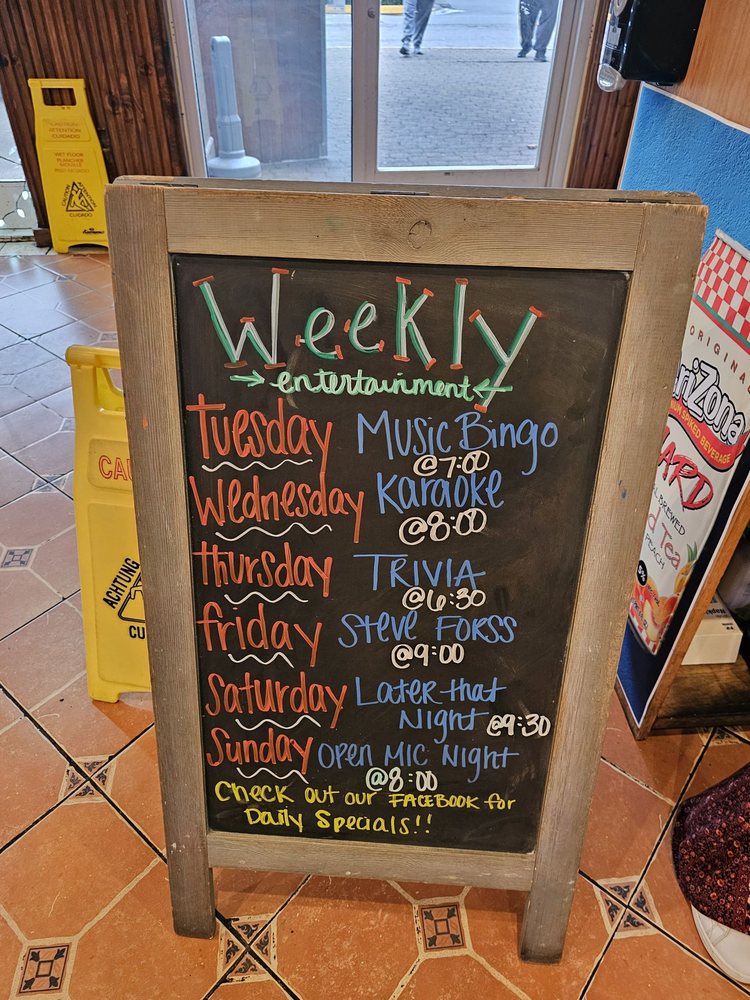 Weekly
entertainment
Tuesday Music Bingo
@7:00
Wednesday Karaoke
@8:00
Thursday TRIVIA
@6:30
Friday Steve Forss
@9:00
Saturday Later that
Night @9:30
Sunday Open Mic Night
@8:00
Check out our FACEBOOK for
Daily Specials!!
CAUTION
ATTENTION
CUIDADO
WET FLOOR
CUIDADO
CAU
ACHTUNG
CU
ORIGINA
AriZona
SPIKED BEVERAGE
ARD
BREWED
d Tea
PEACH